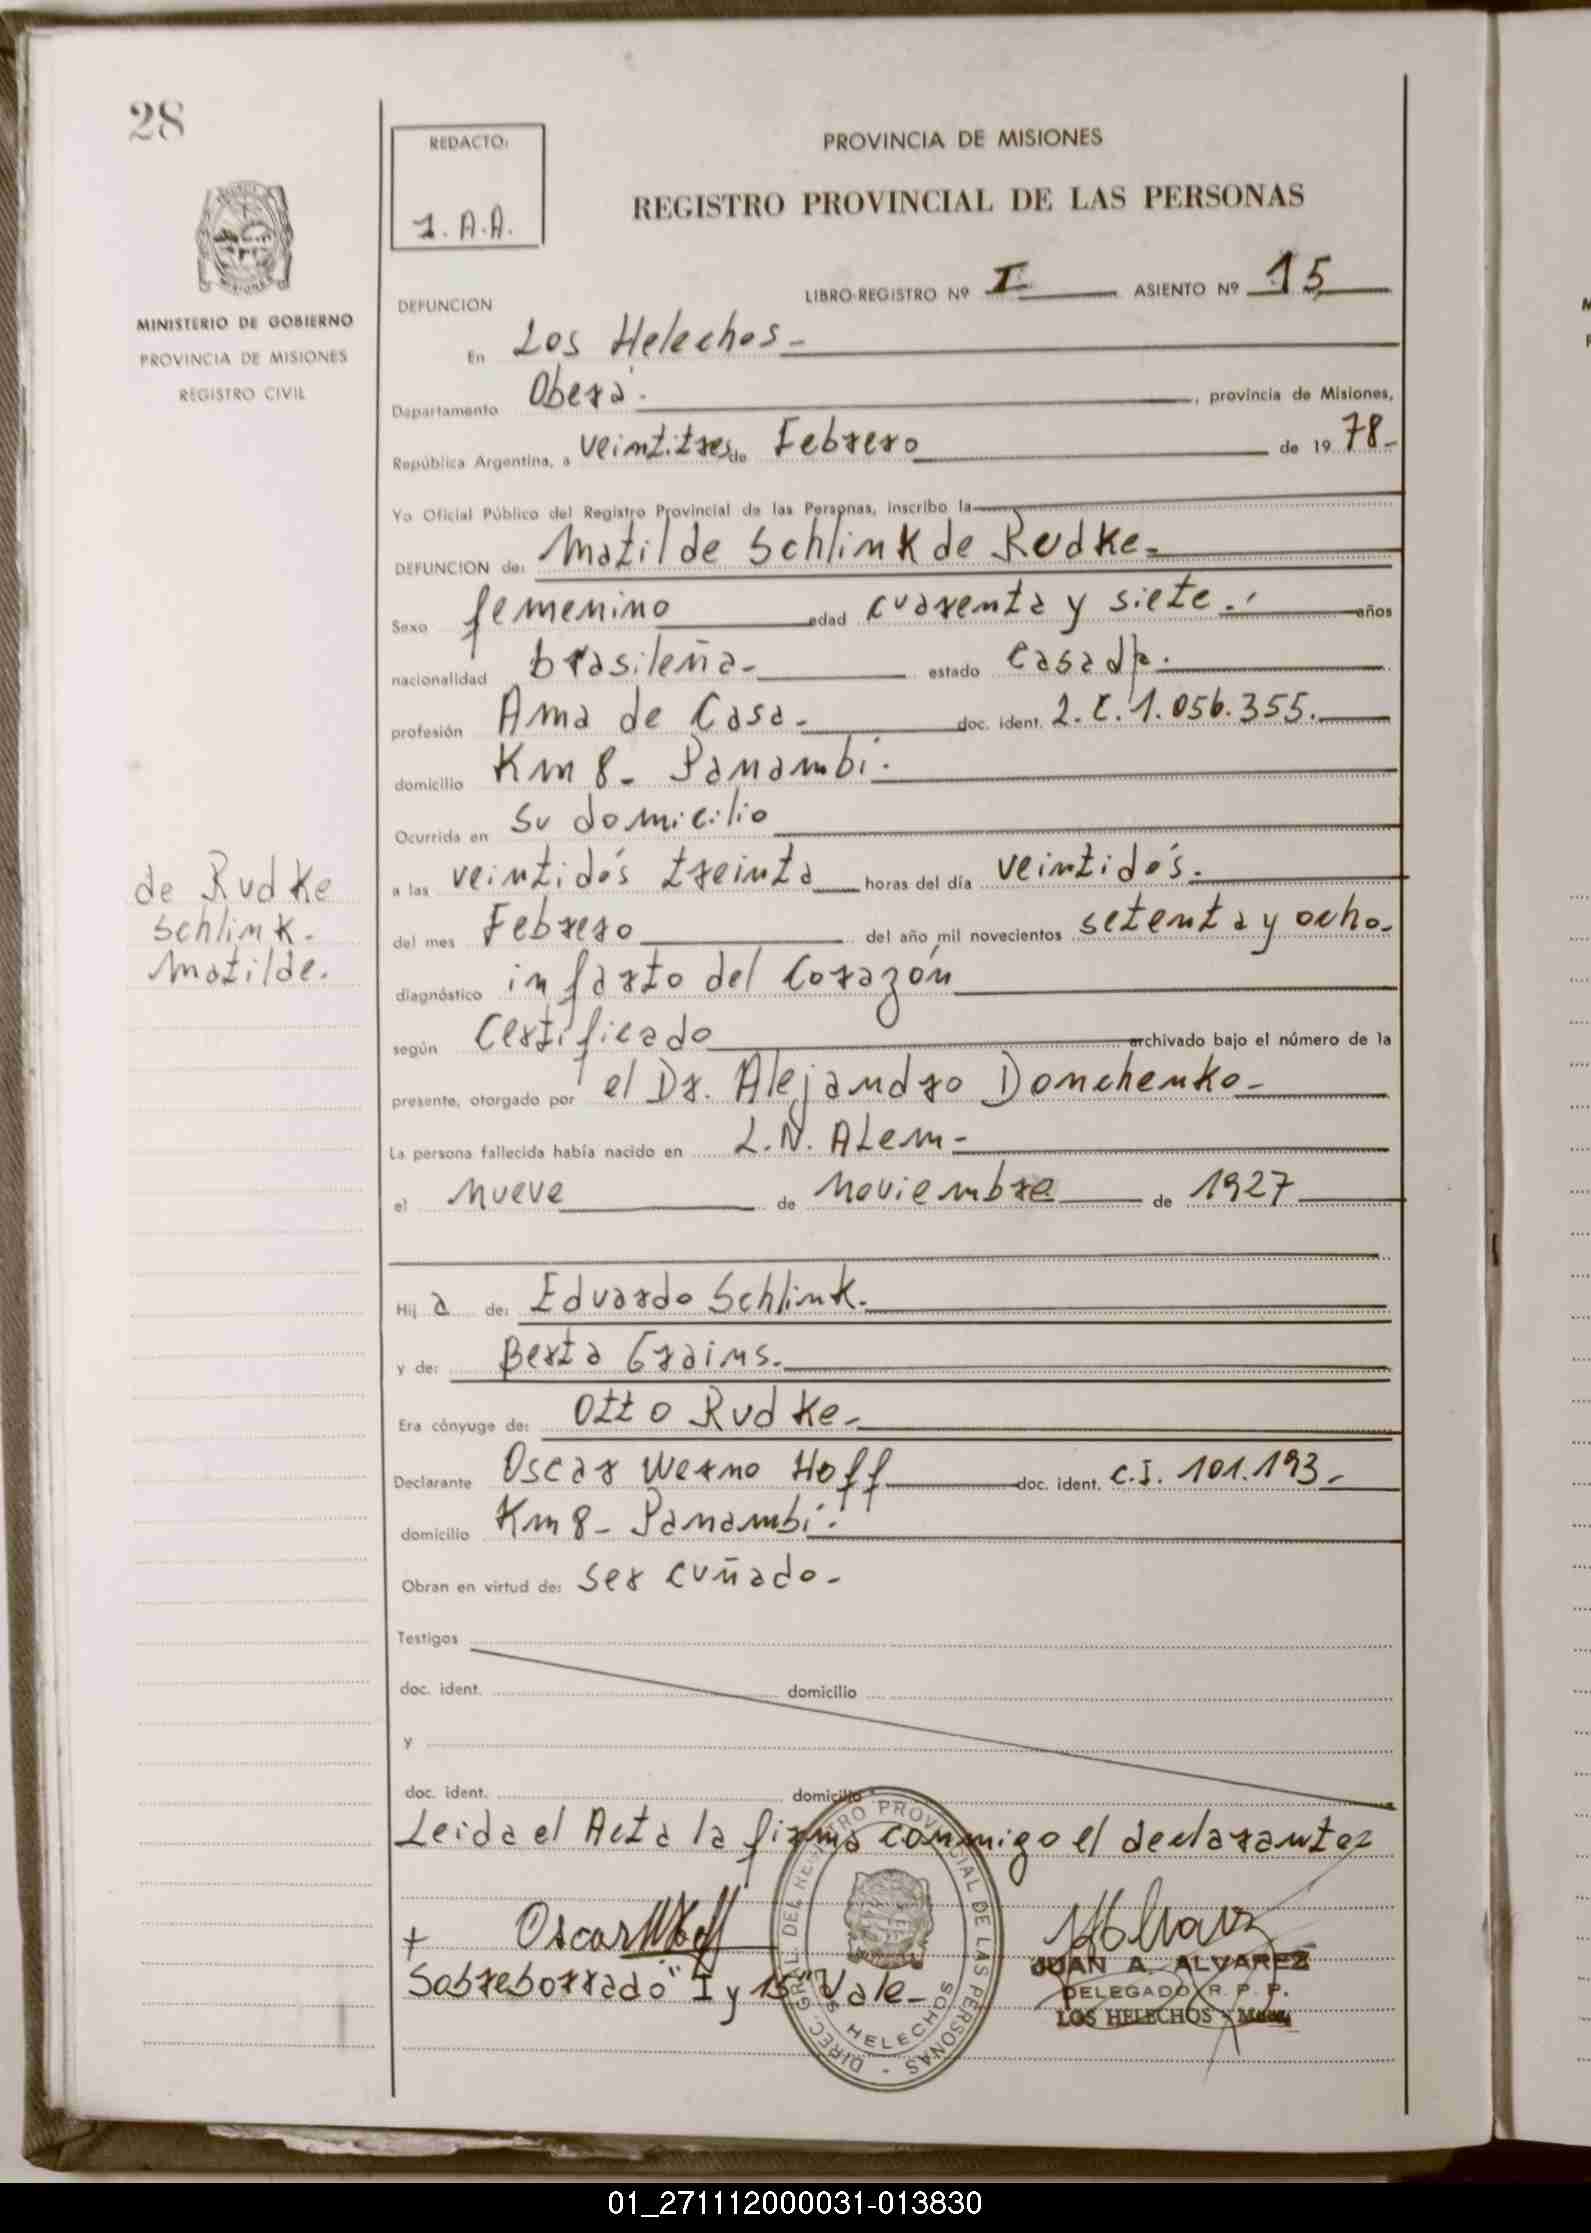 28
REDACTO:
1. A.A.
PROVINCIA DE MISIONES
REGISTRO PROVINCIAL DE LAS PERSONAS
MINISTERIO DE GOBIERNO
PROVINCIA DE MISIONES
REGISTRO CIVIL
LIBRO-REGISTRO Nº I ASIENTO Nº 15
DEFUNCION
En Los Helechos.-
Departamento Oberá. , provincia de Misiones,
República Argentina, a veintitres de Febrero de 1978-
Yo Oficial Público del Registro Provincial de las Personas, inscribo la
DEFUNCION de: Matilde Schlink de Rudke.-
Sexo femenino edad cuarenta y siete.- años
nacionalidad brasileña.- estado casada.
profesión Ama de Casa.- doc. ident. L.C. 1.056.355.
domicilio Km 8- Panambí.
Ocurrida en su domicilio
a las veintidós treinta horas del día veintidós.
del mes Febrero del año mil novecientos setenta y ocho.
diagnóstico infarto del Corazón
según Certificado archivado bajo el número de la
presente, otorgado por el Dr. Alejandro Domchenko-
La persona fallecida había nacido en L.N. ALem-
el nueve de noviembre de 1927
Hija de: Eduardo Schlink.
y de: Berta Grains.
Era cónyuge de: Otto Rudke.
Declarante Oscar Werno Hoff doc. ident. C.I. 101.193.
domicilio Km 8- Panambí.
Obran en virtud de: ser cuñado.-
de Rudke
Schlink.
Matilde.
Testigos
doc. ident. domicilio
y
doc. ident. domicilio
Leida el Acta la firma conmigo el declarante
+ Oscar W Hoff
JUAN A. ALVAREZ
DELEGADO R. P. P.
LOS HELECHOS - Mnes.
Sobreborrado "I y 15" Vale-
DIREC. GRAL. DEL REGISTRO PROVINCIAL DE LAS PERSONAS -
LOS HELECHOS
01_271112000031-013830